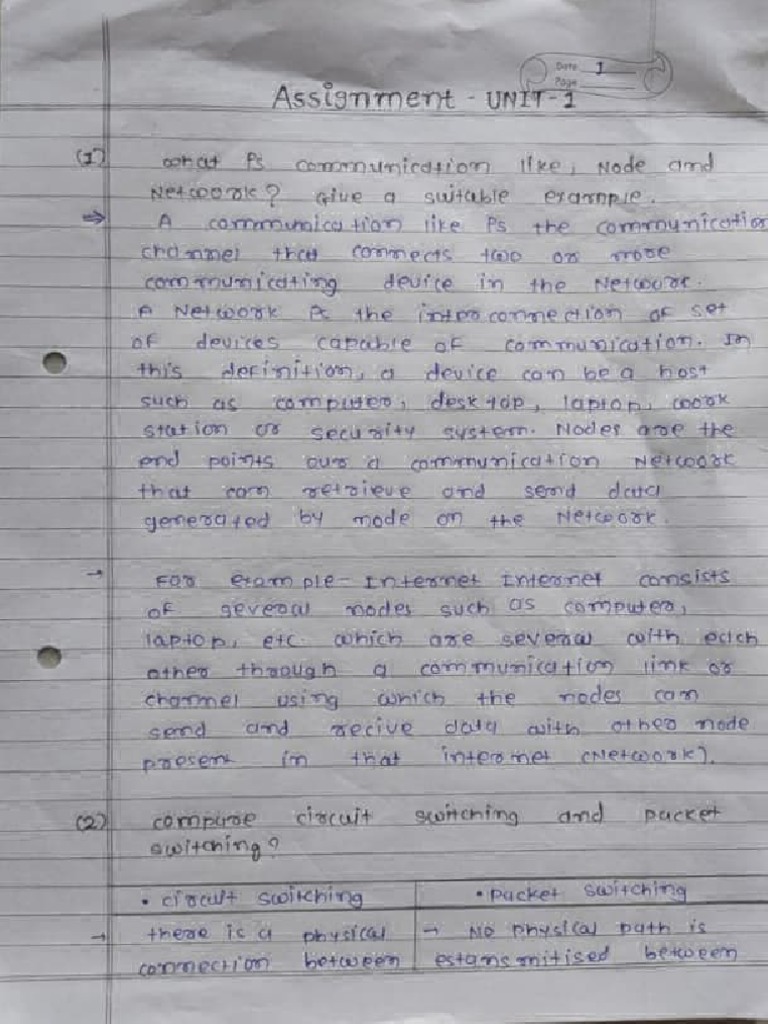 Date 1
Page
Assignment - UNIT-1
(1) what is communication like, Node and
Network? Give a suitable example.
⇒ A communication like is the communication
channel that connects two or more
communicating device in the Network.
A Network is the interconnection of set
of devices capable of communication. In
this definition, a device can be a host
such as computer, desktop, laptop, work
station or security system. Nodes are the
end points over a communication Network
that can retrieve and send data
generated by node on the Network.
→ For example- Internet Internet consists
of several nodes such as computer,
laptop, etc. which are several with each
other through a communication link or
channel using which the nodes can
send and recive data with other node
present in that internet (Network).
(2) compare circuit switching and packet
switching?
• circuit switching • packet switching
→ there is a physical → No physical path is
connection between estansmitised between